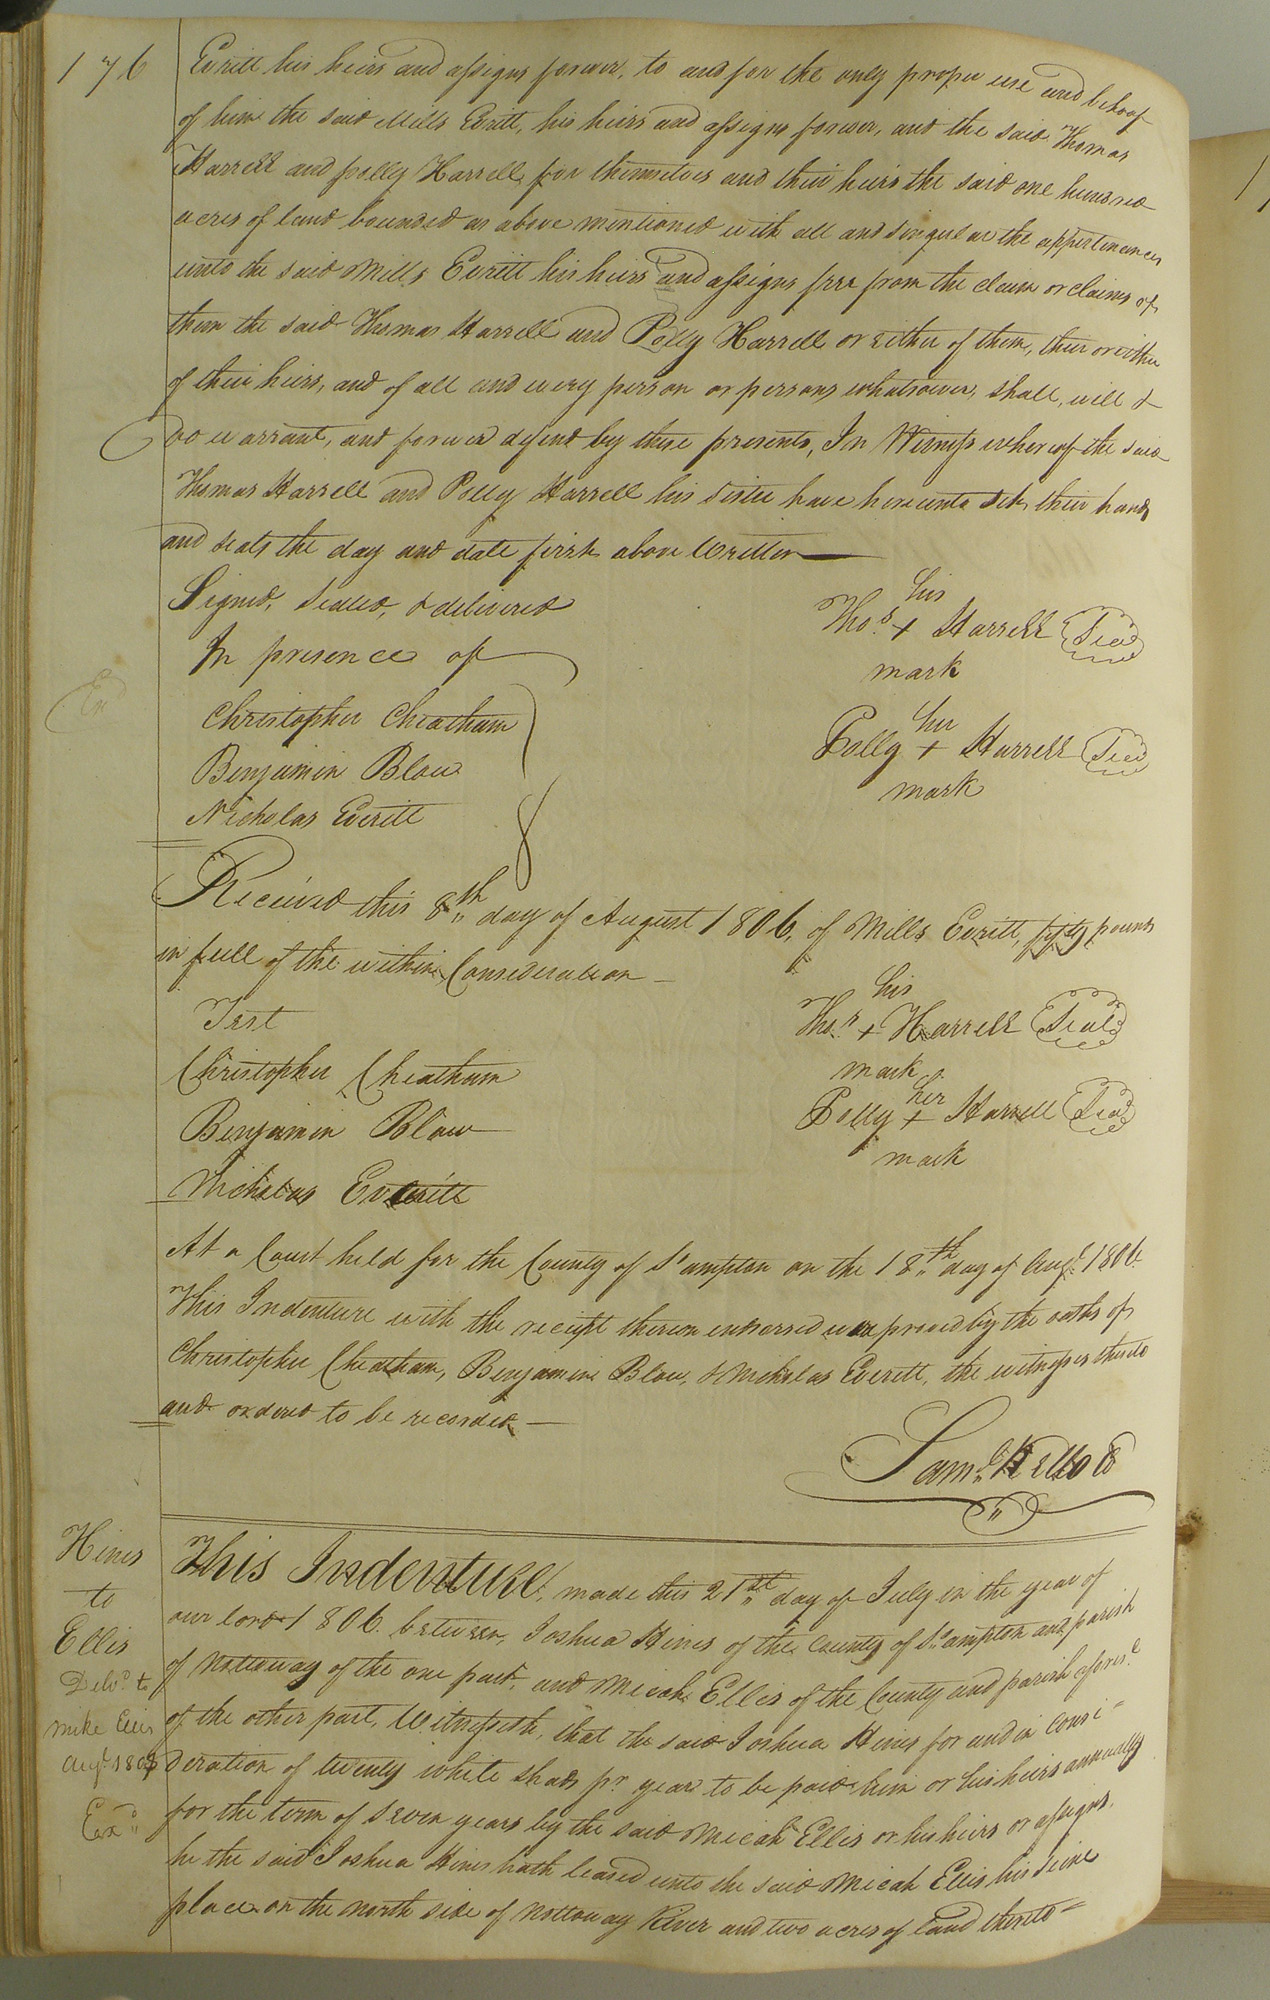 176
Evritt his heirs and assigns forever, to and for the only proper use and behoof
of him the said Mills Evritt, his heirs and assigns forever, and the said Thomas
Harrell and polly Harrell for themselves and their heirs the said one hundred
acres of land bounded as above mentioned with all and singular the appertinances
unto the said Mills Evritt his heirs and assigns free from the claim or claims of
them the said Thomas Harrell and Polly Harrell or either of them, their or either
of their heirs, and of all and every person or persons whatsoever, shall, will &
do warrant, and forever defend by these presents, In Witness whereof the said
Thomas Harrell and Polly Harrell his sister have hereunto set their hands
and seals the day and date first above Written
Signed, sealed, & delivered
In presence of
Christopher Cheatham
Benjamin Blow
Nicholas Evritt
his
Thos. + Harrell Seal
mark
her
Polly + Harrell Seal
mark
Received this 8th day of August 1806, of Mills Evritt, fifty pounds
in full of the within Consideration
Test
Christopher Cheatham
Benjamin Blow
Nicholas Everitt
his
Thos. + Harrell Seal
mark
her
Polly + Harrell Seal
mark
At a Court held for the County of S'ampton on the 18th day of Augt. 1806
This Indenture with the receipt thereon endorsed was proved by the oaths of
Christopher Cheatham, Benjamin Blow, & Nicholas Everett, the witnesses thereto
and ordered to be recorded
Saml. Kello CC
Hines
to
Ellis
Delvd. to
Mike Ellis
Augt.
Exd.
This Indenture, made this 21st day of July in the year of
our lord 1806. between, Joshua Hines of the County of So.ampton and parish
of Nottoway of the one part, and Micah Ellis of the County and parish aforesd.
of the other part, Witnesseth, that the said Joshua Hines for and in consi-
deration of twenty white shads pr. year to be paid him or his heirs annually
for the term of seven years by the said Micah Ellis or his heirs or assigns,
he the said Joshua Hines hath leased unto the said Micah Ellis his seine
place on the north side of Nottoway River and two acres of land thereto=